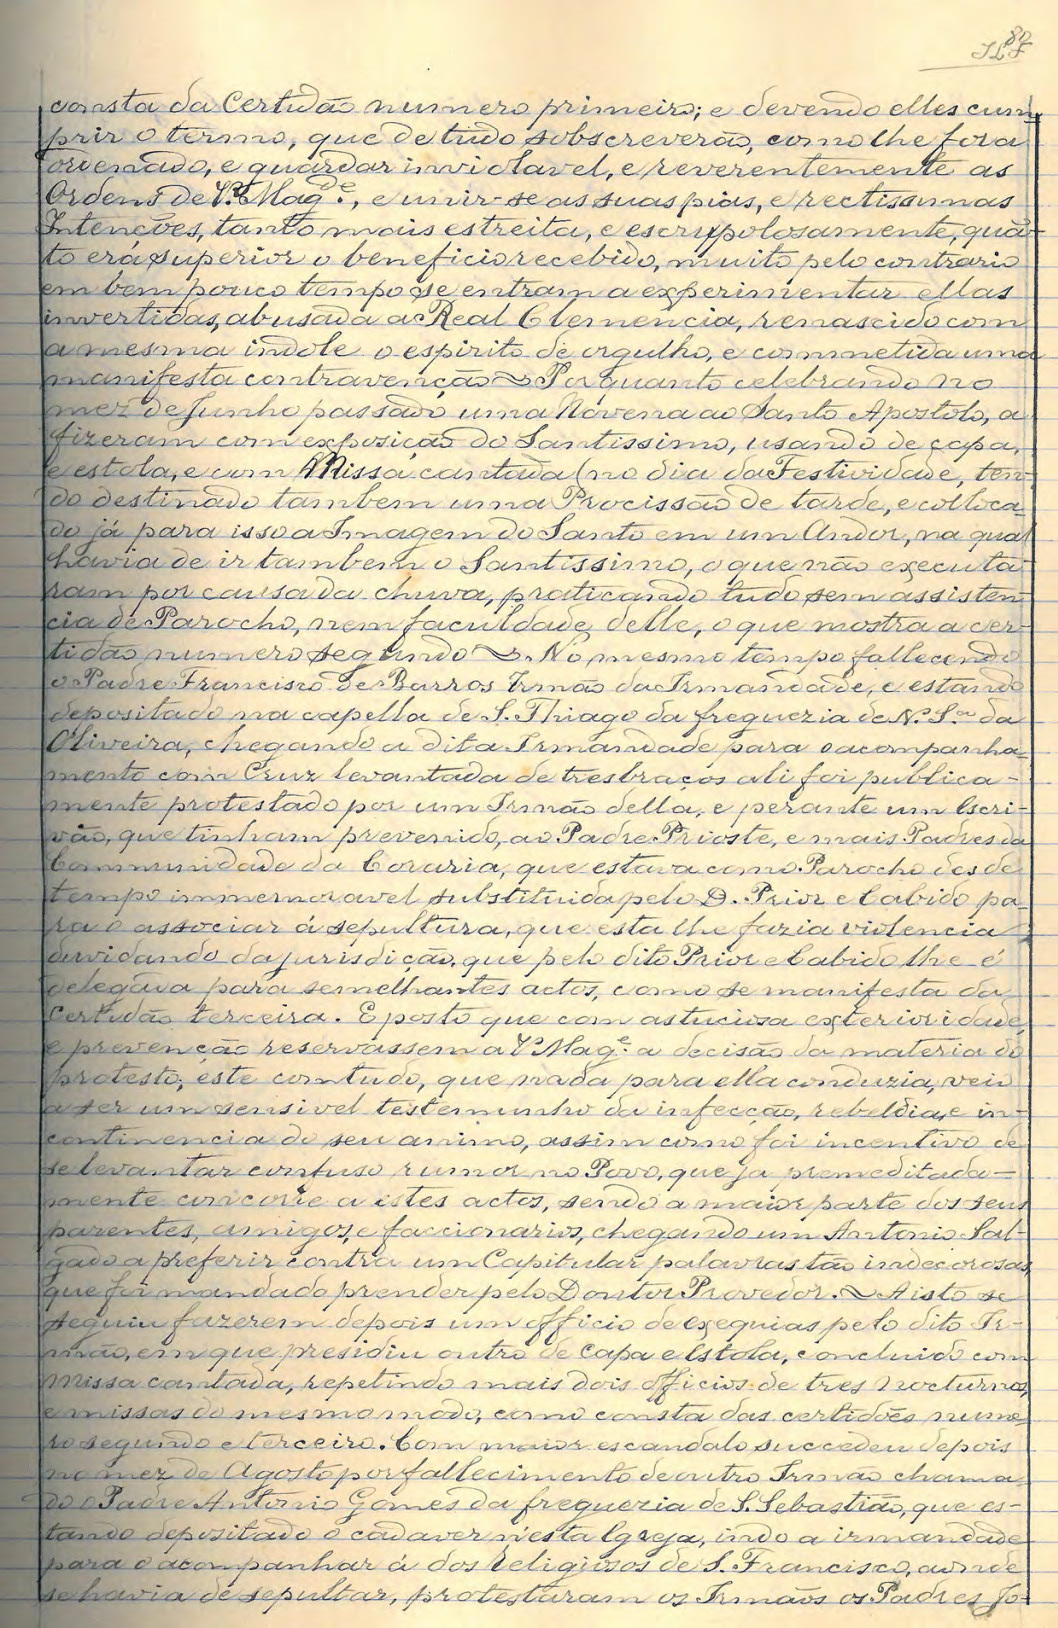 82
consta da Certidão numero primeiro; e devendo elles cum-
prir o termo, que de tudo sobscreverão, como lhe fora
ordenado, e guardar inviolavel, e reverentemente as
Ordens de V.ª Mag.de, e unir-se as suas pias, e rectissimas
Intenções, tanto mais estreita, e escrupolosamente, quã-
to erá superior o beneficio recebido, muito pelo contrario
em bem pouco tempo se entram a experimentar ellas
invertidas, abusada a Real Clemencia, renascido com
a mesma indole o espirito de orgulho, e commetida uma
manifesta contravenção ~ Porquanto celebrando no
mez de Junho passado uma Novena ao Santo Apostolo, a
fizeram com exposição do Santissimo, usando de capa,
e estola, e com Missa cantada (no dia da Festividade, ten-
do destinado tambem uma Procissão de tarde, e colloca-
do já para isso a Imagem do Santo em um Andor, na qual
havia de ir tambem o Santissimo, o que não executa-
ram por causa da chuva, praticando tudo sem assisten-
cia de Parocho, nem faculdade delle, o que mostra a cer-
tidão numero segundo ~. No mesmo tempo fallecendo
o Padre Francisco de Barros Irmão da Irmandade, e estando
depositado na capella de S. Thiago da freguezia de N.ª Sr.ª da
Oliveira, chegando a dita Irmandade para o acompanha-
mento com Cruz levantada de tres braços ali foi publica-
mente protestado por um Irmão della, e perante um Escri-
vão, que tinham prevenido, ao Padre Prioste, e mais Padres da
Communidade da Coraria, que estava como Parocho desde
tempo immemoravel substituida pelo D. Prior e Cabido pa-
ra o associar á sepultura, que esta lhe fazia violencia
duvidando da jurisdicção, que pelo dito Prior e Cabido lhe é
delegava para semelhantes actos, como se manifesta da
Certidão terceira. E posto que com astuciosa exterioridade,
e prevenção reservassem a V.ª Mag.e a decisão da materia do
protesto, este comtudo, que nada para ella conduzia, veio
a ser um sensivel testemunho da infecção, rebeldia, e in-
continencia do seu animo, assim como foi incentivo de
se levantar confuso rumor no Povo, que ja premeditada-
mente concorre a istes actos, sendo a maior parte dos seus
parentes, amigos, e faccionarios, chegando um Antonio Sal-
gado a preferir contra um Capitular palavras tão indecorosas,
que foi mandado prender pelo Doutor Provedor. ~ Aisto se
seguiu fazerem depois um officio de exequias pelo dito Ir-
mão, em que presidiu outro de Capa e Estola, concluido com
Missa cantada, repetindo mais dois officios de tres nocturnos,
e missas do mesmo modo, como consta das certidões nume-
ro segundo e terceiro. Com maior escandalo succedeu depois
no mez de Agosto por fallecimento de outro Irmão chama-
do o Padre Antonio Gomes da freguezia de S. Sebastião, que es-
tando depositado o cadaver n'esta Igreja, indo a irmandade
para o acompanhar á dos Religiosos de S. Francisco, aonde
se havia de sepultar, protestaram os Irmãos os Padres Jo-